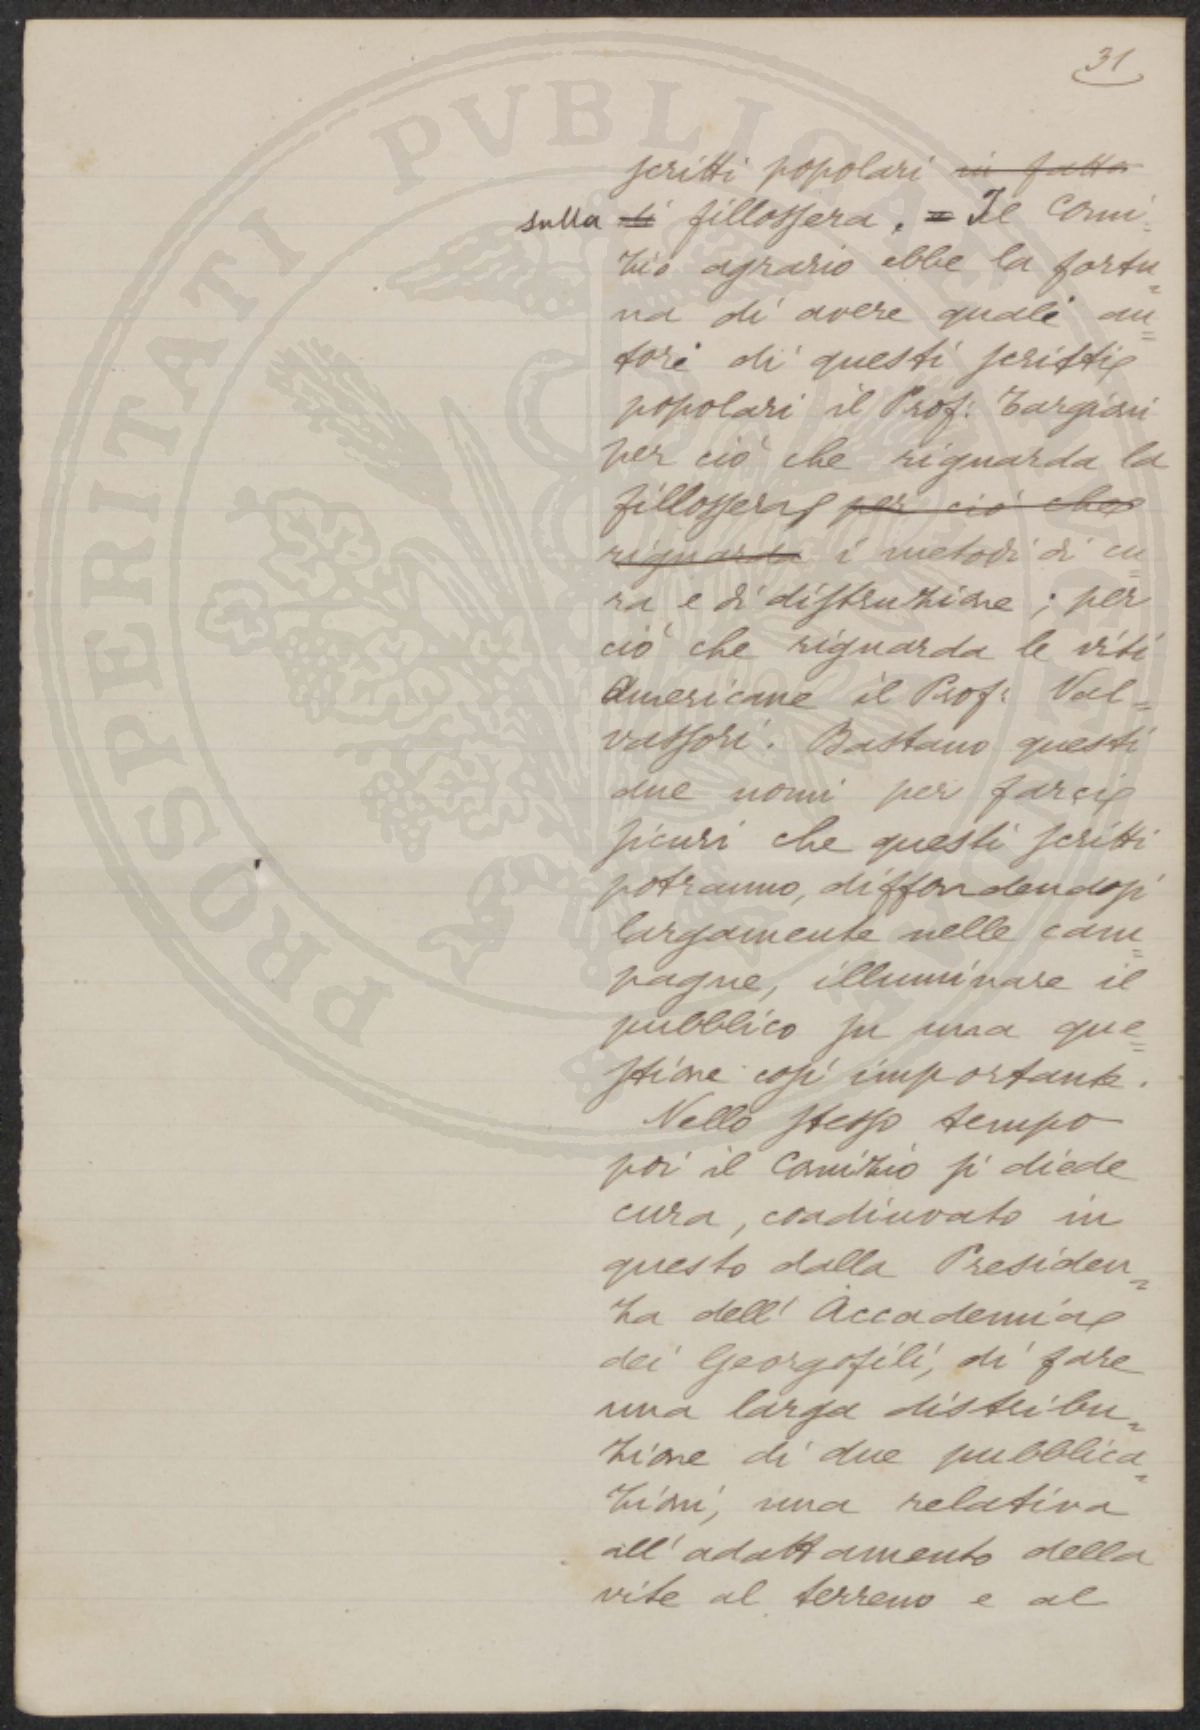 31
scritti popolari in fatto
sulla di fillossera. = Il Comi-
zio agrario ebbe la fortu=
na di avere quali au=
tori di questi scritti
popolari il Prof: Targioni
per ciò che riguarda la
fillossera, per ciò che
riguarda i metodi di cu=
ra e di distruzione; per
ciò che riguarda le viti
Americane il Prof: Val=
vassori. Bastano questi
due nomi per farci
sicuri che questi scritti
potranno, diffondendosi
largamente nelle cam=
pagne, illuminare il
pubblico su una que=
stione così importante.
Nello stesso tempo
poi il Comizio si diede
cura, coadiuvato in
questo dalla Presiden=
za dell' Accademia
dei Georgofili, di fare
una larga distribu=
zione di due pubblica=
zioni, una relativa
all' adattamento della
vite al terreno e al
PROSPERITATI PVBLICAE